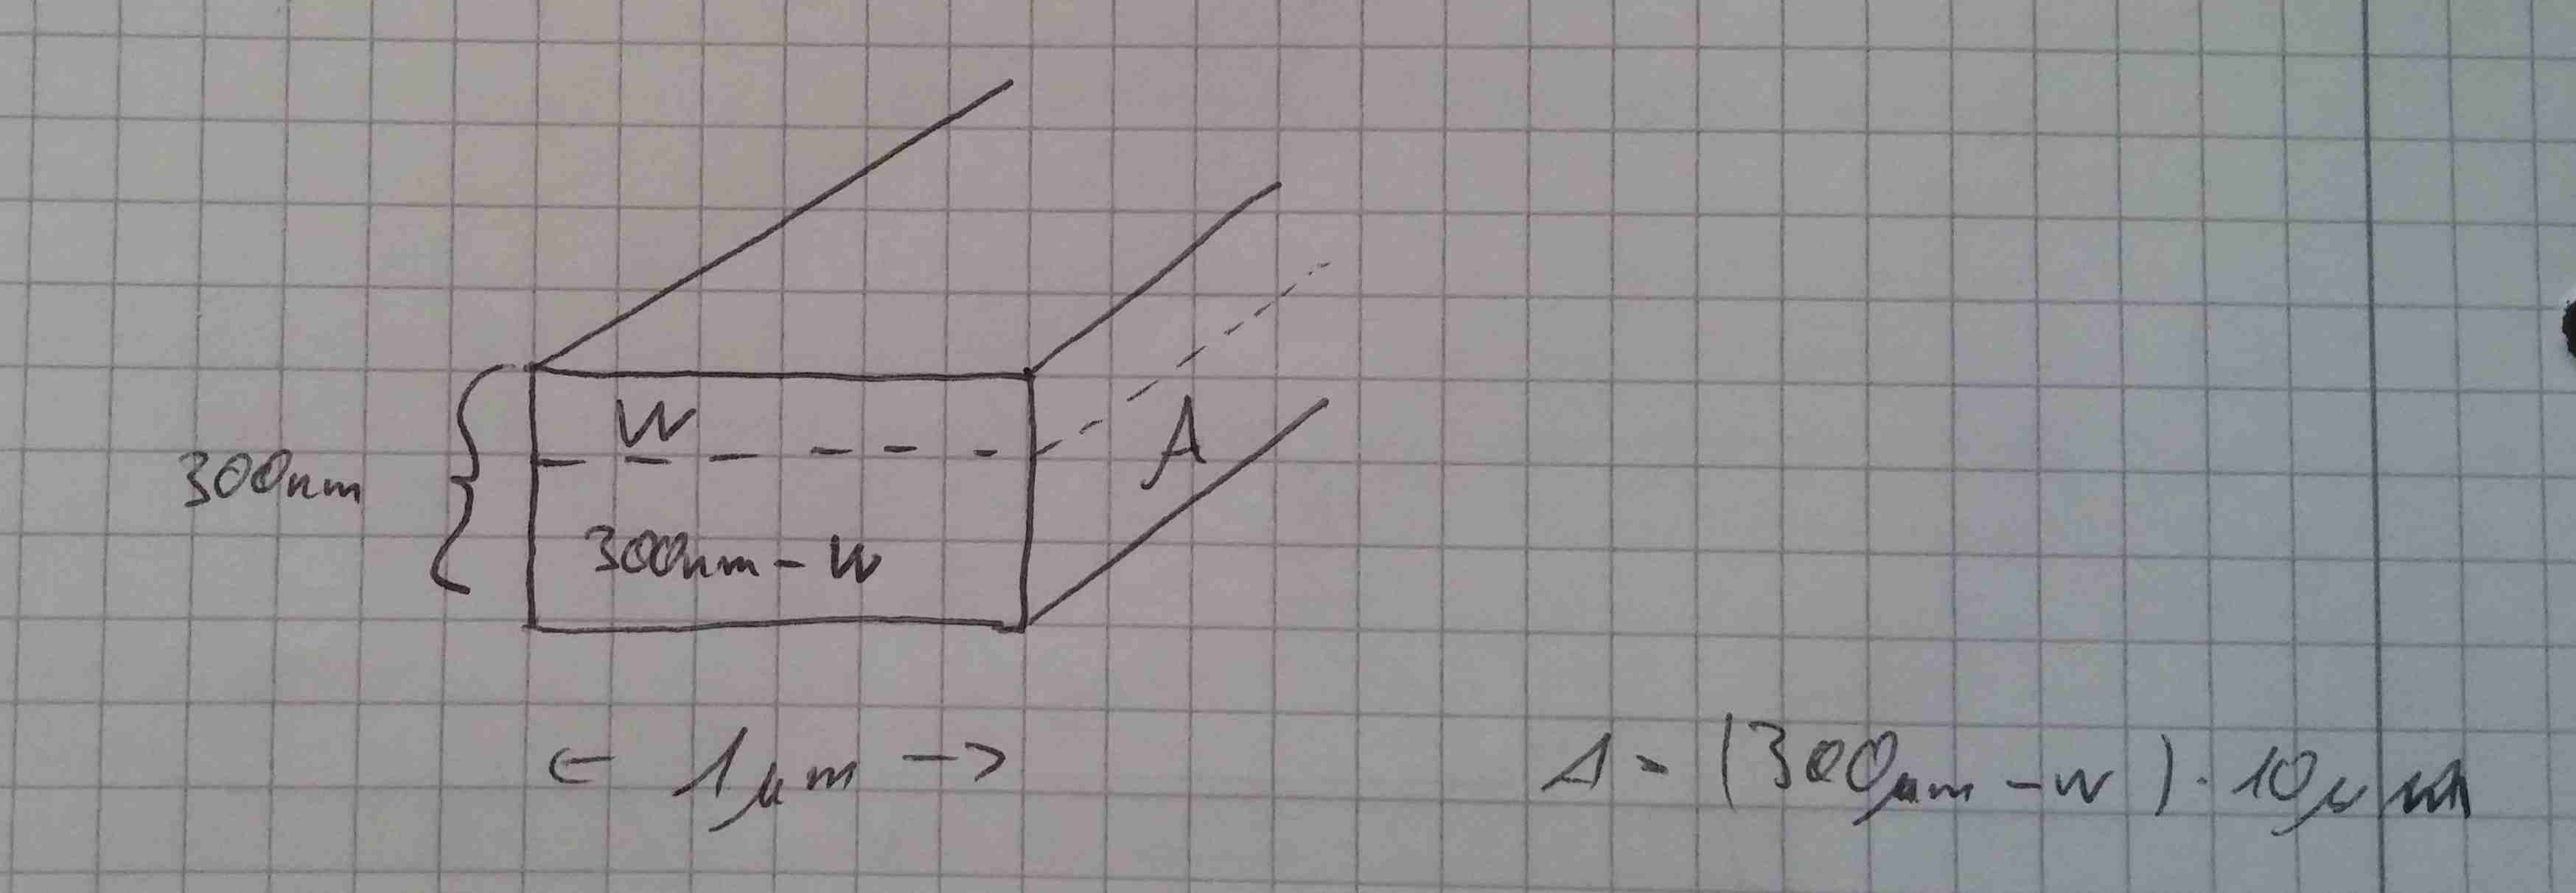 W
A
300nm
300nm - W
← 1μm →
A = (300μm - W) · 10μm